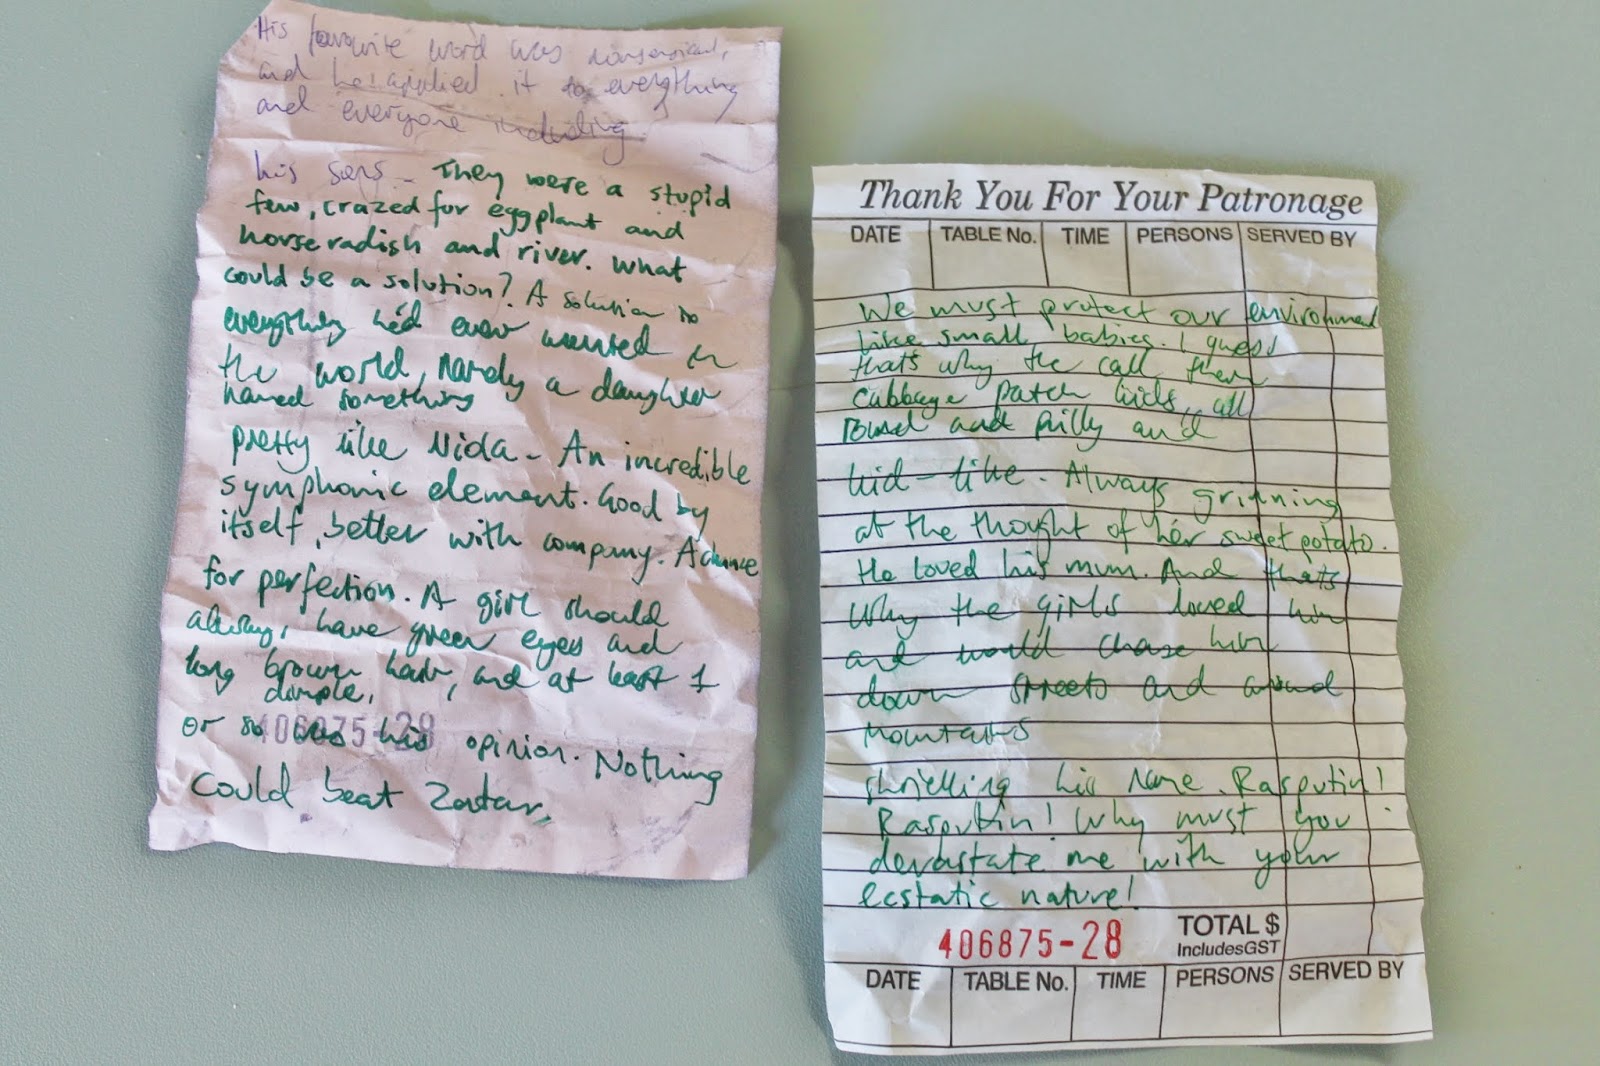 His favourite word was nonsensical,
and he applied it to everything
and everyone including
his sons – They were a stupid
few, crazed for eggplant and
horseradish and river. What
could be a solution? A solution to
everything he'd ever wanted in
the world, namely a daughter
named something
pretty like Nida – An incredible
symphonic element. Good by
itself, better with company. A chance
for perfection. A girl should
always, have green eyes and
long brown hair, and at least 1
dimple,
or so was his opinion. Nothing
406875-28
could beat Zaatar,
Thank You For Your Patronage
DATE TABLE No. TIME PERSONS SERVED BY
We must protect our environment
like small babies. I guess
that's why the call them
cabbage patch kids, all
round and frilly and
kid-like. Always grinning
at the thought of her sweet potato.
He loved his mum. And thats
why the girls loved him
and would chase him
down streets and around
mountains
shrielling his name. Rasputin!
Rasputin! Why must you
devastate me with your
ecstatic nature!
406875-28 TOTAL $
IncludesGST
DATE TABLE No. TIME PERSONS SERVED BY